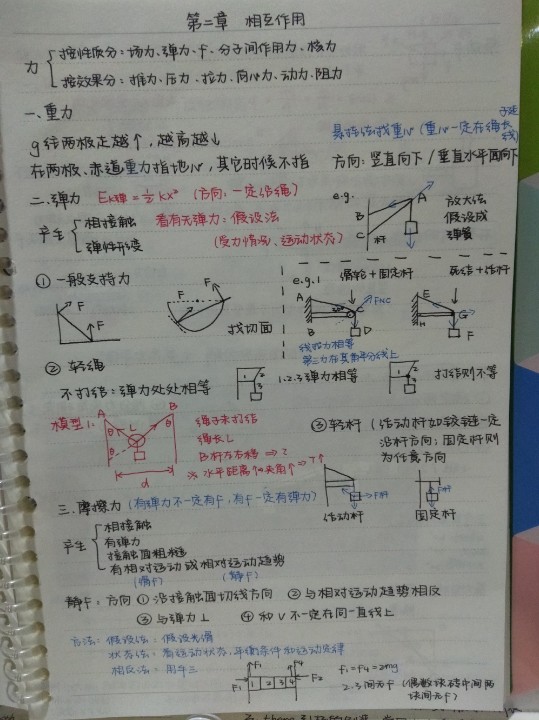 第二章 相互作用
力
按性质分：场力、弹力、f、分子间作用力、核力
按效果分：推力、压力、拉力、向心力、动力、阻力
一、重力
g往两极走越↑，越高越↓
悬挂法找重心（重心一定在绳
在两极、赤道重力指地心，其它时候不指
方向：竖直向下/垂直水平面向下
二、弹力 Ek弹=½kx² （方向：一定沿绳）
产生
相接触 看有无弹力：假设法
弹性形变 （受力情况、运动状态）
e.g. A B C 杆
放大法
假设成
弹簧
① 一般支持力
F F F F
找切面
e.g.1 滑轮+固定杆 死结+活杆
A B C D FNC
E H G F
线拉力相等
第三力在其角平分线上
② 轻绳
不打结：弹力处处相等
1 2 3
1.2.3弹力相等
1 2 3
打结则不等
模型1：
A B L θ θ θ d
绳子未打结
绳长L
B杆左右移 ⇒ ?
※ 水平距离↑夹角↑⇒T↑
③ 轻杆（活动杆如铰链一定
沿杆方向；固定杆则
为任意方向
F杆 F杆
活动杆 固定杆
三、摩擦力（有弹力不一定有f，有f一定有弹力）
产生
相接触
有弹力
接触面粗糙
有相对运动或相对运动趋势
（滑f） （静f）
静f：方向 ① 沿接触面切线方向 ② 与相对运动趋势相反
③ 与弹力⊥ ④ 和v不一定在同一直线上
方法：假设法：假设光滑
状态法：看运动状态，平衡条件和运动定律
相反法：用牛三
F₁ f₁ 1 2 3 4 f₄ F₂
f₁=f₄=2mg
2.3间无f（偶数块砖中间两
块间无f）